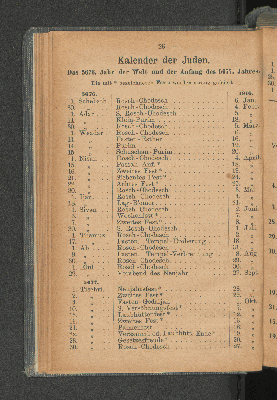 26
Kalender der Juden.
Das 5676. Jahr der Welt und der Anfang des 5677. Jahres.
5676. 1916.
1. Schebath Rosch-Chodesch 6. Jan.
30. " Rosch-Chodesch 4. Febr.
1. Adar 2. Rosch-Chodesch 5. "
" Klein-Purim 18. "
" Rosch-Chodesch 5. März
1. Weadar Rosch-Chodesch 6. "
" Fasten-Esther 16. "
14. " Purim 19. "
15. " Schuschan-Purim 20. "
1. Nisan Rosch-Chodesch 4. April
15. " Passah-Anf.* 18. "
16. " Zweites Fest* 19. "
21. " Siebentes Fest* 24. "
22. " Achtes Fest* 25. "
30. " Rosch-Chodesch 3. Mai
" Rosch-Chodesch 4. "
" Lag-Beomer 21. "
1. Sivan Rosch-Chodesch 2. Juni
6. " Wochenfest* 7. "
7. " Zweites Fest* 8. "
30. " Rosch-Chodesch 1. Juli
1. Thamus Rosch-Chodesch 2. "
17. " Fasten, Tempel-Eroberung 18. "
1. Ab Rosch-Chodesch 31. "
9. " Fasten, Tempel-Verbrennung 8. Aug.
30. " Rosch-Chodesch 29. "
1. Elul Rosch-Chodesch 30. "
29. " Vorabend des Neujahr 27. Sept.
5677.
1. Tischri. Neujahrsfest* 28. "
2. " Zweites Fest* 29. "
" Fasten-Gedaljah 1. Okt.
10. " Versöhnungsfest* 7. "
15. " Laubhüttenfest* 12. "
16. " Zweites Fest* 13. "
21. " Palmenfest 18. "
22. " Versamml. od. Laubhütt. Ende* 19. "
23. " Gesetzesfreude* 20. "
30. " Rosch-Chodesch 27. "